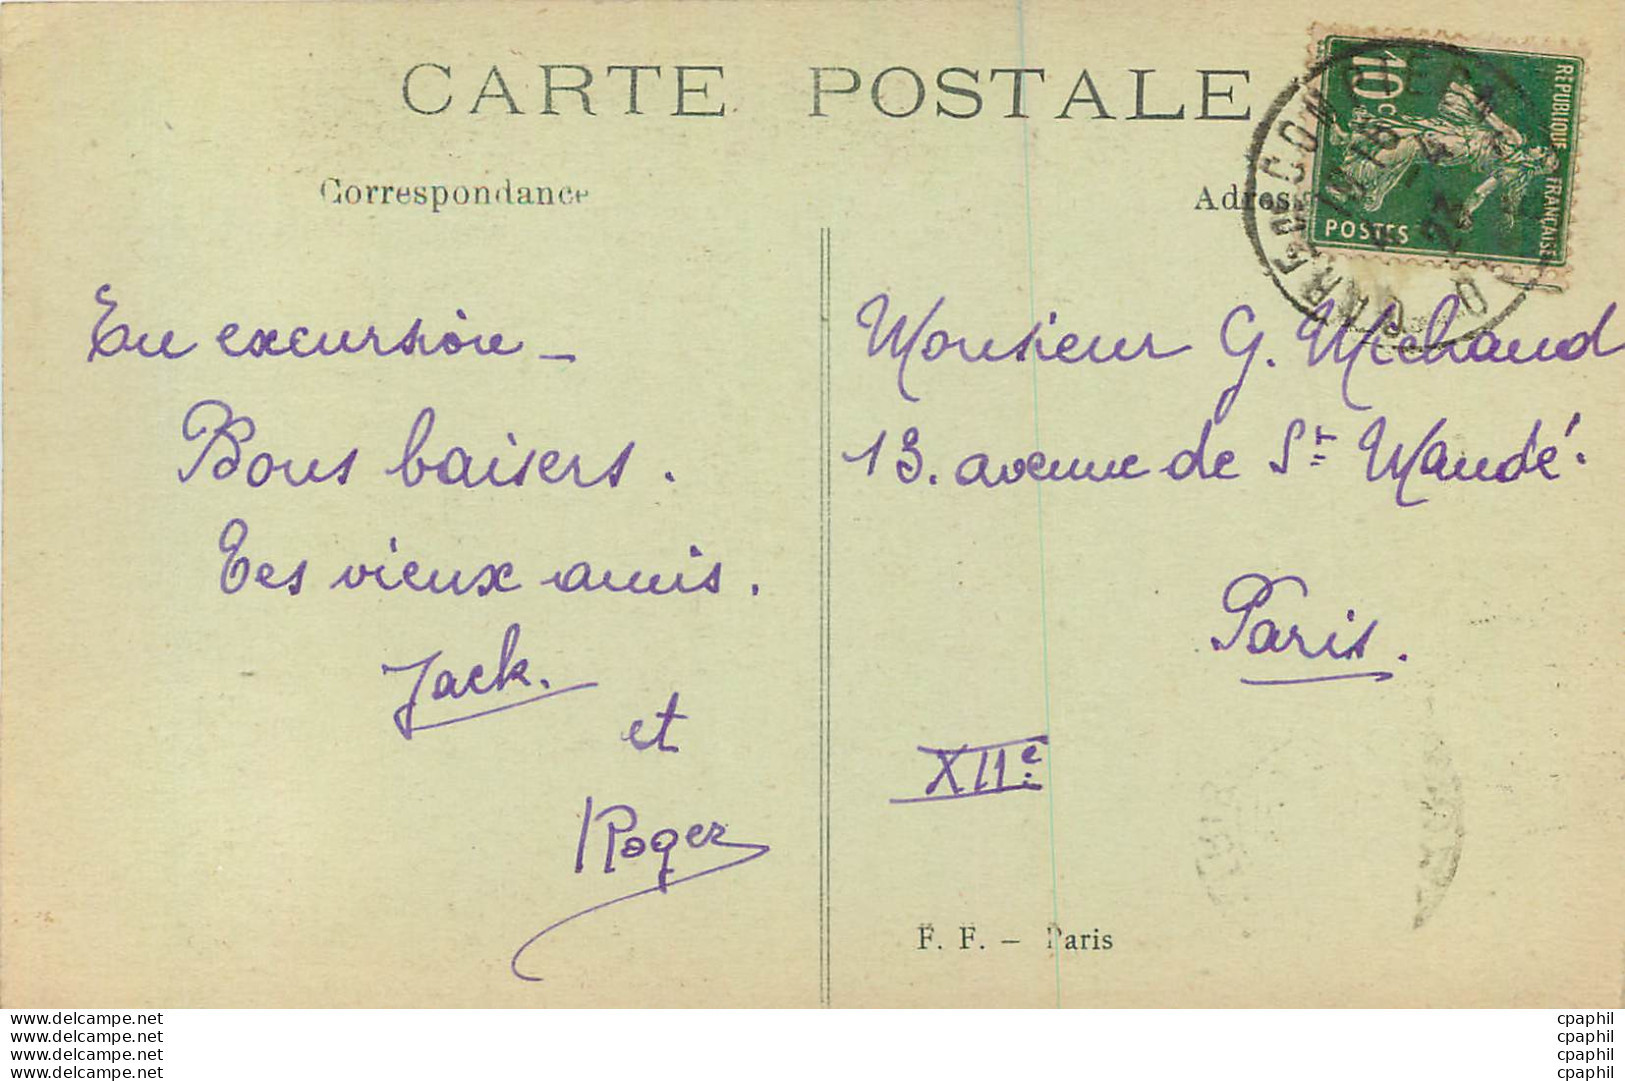 CARTE POSTALE
Correspondance
En excursion -
Bons baisers.
Tes vieux amis.
Jack.
et
Roger
10c
REPUBLIQUE FRANÇAISE
POSTES
GARE DE COMPIEGNE
18
-4
23
Monsieur G. Michaud
13. avenue de St Mandé.
Paris.
XIIe
F. F. - Paris
www.delcampe.net
www.delcampe.net
www.delcampe.net
www.delcampe.net
cpaphil
cpaphil
cpaphil
cpaphil